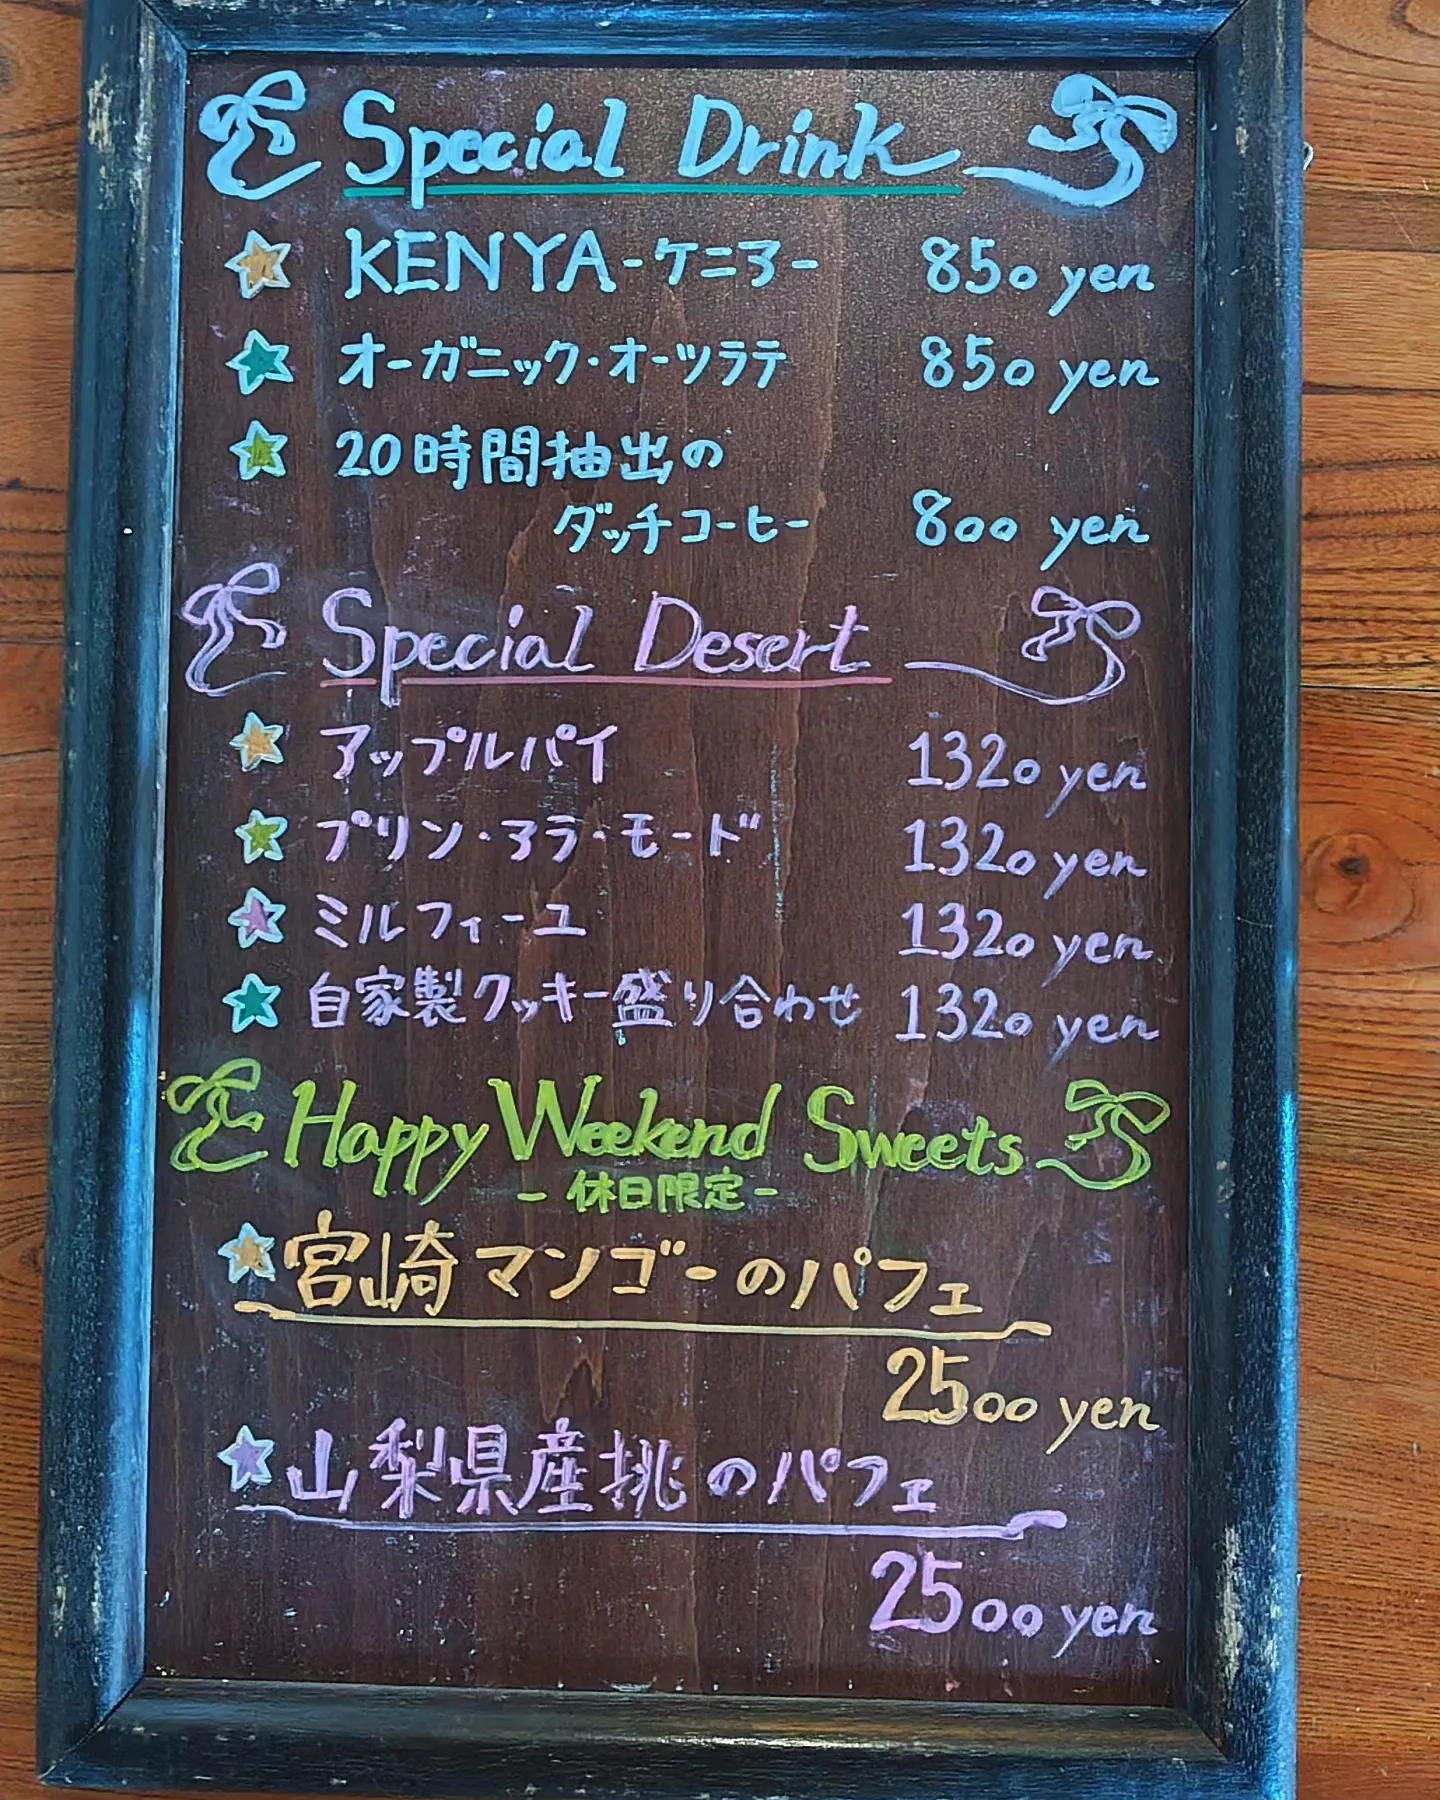 Special Drink
KENYA-ケニア- 850 yen
オーガニック・オーツラテ 850 yen
20時間抽出の
ダッチコーヒー 800 yen
Special Desert
アップルパイ 1320 yen
プリン・アラ・モード 1320 yen
ミルフィーユ 1320 yen
自家製クッキー盛り合わせ 1320 yen
Happy Weekend Sweets
-休日限定-
宮崎マンゴーのパフェ
2500 yen
山梨県産桃のパフェ
2500 yen